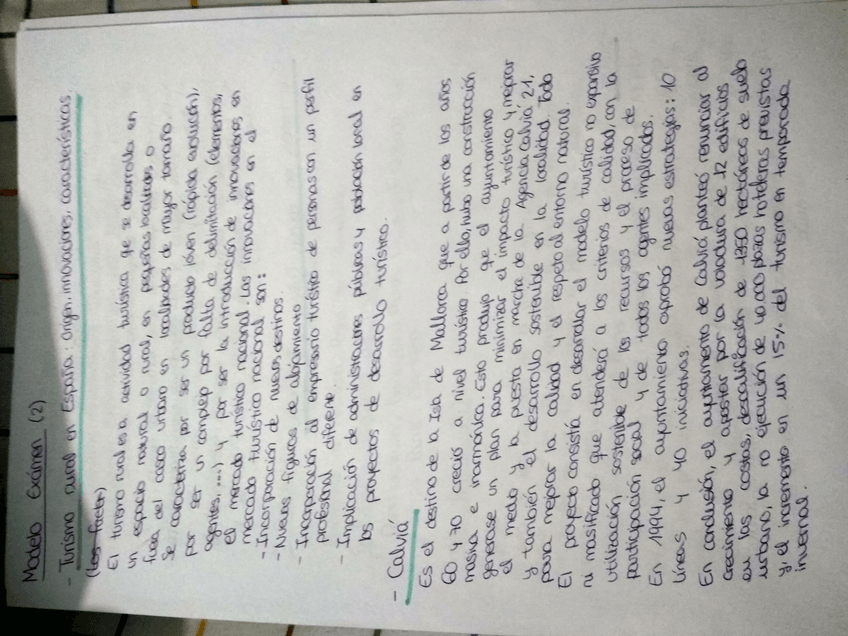 Modelo Exámen (2)
- Turismo rural en España: Origen, innovaciones, características,
(Los factor)
El turismo rural es a actividad turística que se desarrolla en
un espacio natural o rural, en pequeñas localidades o
fuera del casco urbano en localidades de mayor tamaño.
Se caracteriza por ser un producto jóven (rápida evolución),
por ser un complejo por falta de delimitación (elementos,
agentes, ...) y por ser la introducción de innovaciones en
el mercado turístico nacional. Las innovaciones en el
mercado turístico nacional son:
- Incorporación de nuevos destinos.
- Nuevas figuras de alojamiento
- Incorporación al empresario turístico de personas con un perfil
profesional diferente.
- Implicación de administraciones públicas y población local en
los proyectos de desarrollo turístico.
- Calviá
Es el destino de la Isla de Mallorca que a partir de los años
60 y 70 creció a nivel turístico. Por ello, hubo una construcción
masiva e inarmónica. Esto produjo que el ayuntamiento
generase un plan para minimizar el impacto turístico y mejorar
el medio y la puesta en marcha de la Agencia Calviá 21,
y también el desarrollo sostenible en la localidad. Todo
para mejorar la calidad y el respeto al entorno natural.
El proyecto consistía en desarrollar el modelo turístico no expansivo
ni masificado que atenderá a los criterios de calidad, con la
utilización sostenible de los recursos y el proceso de
participación social y de todos los agentes implicados.
En 1994, el ayuntamiento aprobó nuevas estrategias: 10
líneas y 40 iniciativas.
En conclusión, el ayuntamiento de Calviá planteó renunciar al
crecimiento y apostar por la voladura de 12 edificios
en las costas, descalificación de 1350 hectáreas de suelo
urbano, la no ejecución de 40.000 plazas hoteleras previstas
y el incremento en un 15% del turismo en temporada
invernal.